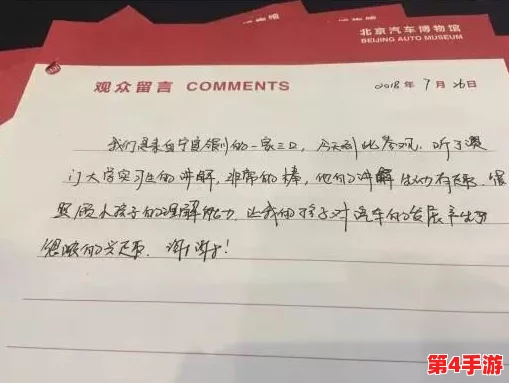 北京汽车博物馆
BEIJING AUTO MUSEUM
观众留言 COMMENTS
2018 年 7 月 26 日
我们是来自宁夏银川的一家三口，今天到此参观，听了澳
门大学实习生的讲解，非常的棒，他的讲解生动有趣，很
照顾小孩子的理解能力，让我的孩子对汽车的发展产生了
很浓的兴趣，谢谢！
第4手游